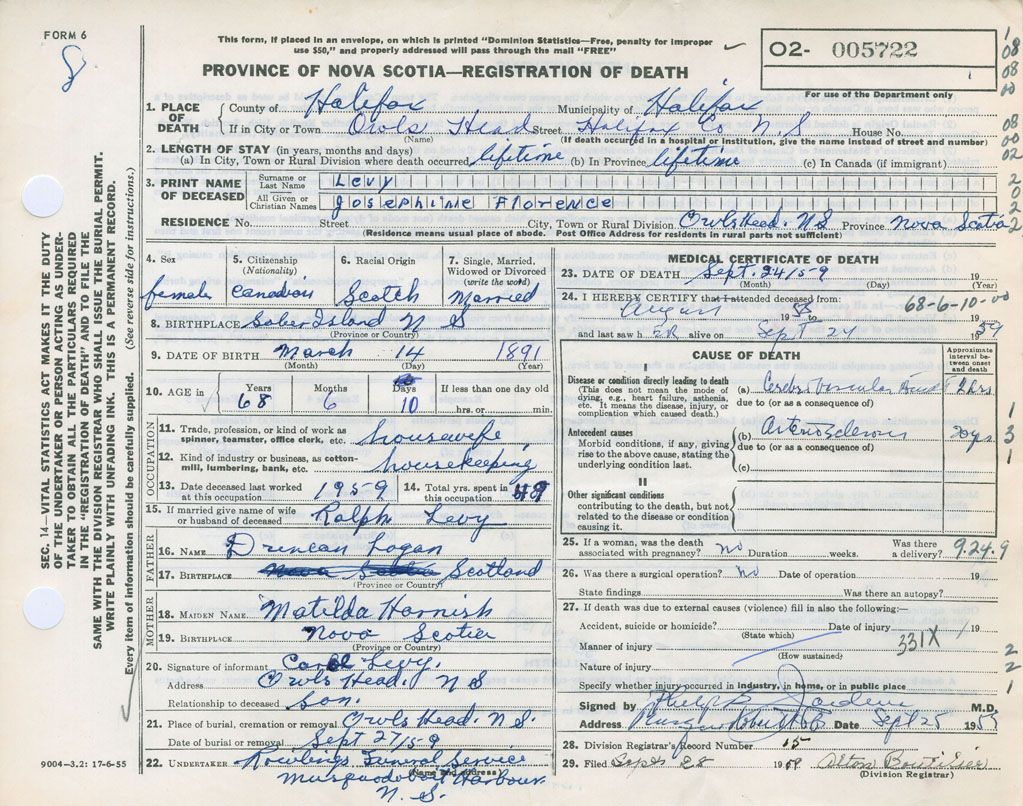 FORM 6
8
This form, if placed in an envelope, on which is printed "Dominion Statistics—Free, penalty for improper
use $50," and properly addressed will pass through the mail "FREE"
PROVINCE OF NOVA SCOTIA—REGISTRATION OF DEATH
O2- 005722
For use of the Department only
1
08
08
00
08
00
02
2
0
2
2
1
3
1
2
2
1
SEC. 14—VITAL STATISTICS ACT MAKES IT THE DUTY
OF THE UNDERTAKER OR PERSON ACTING AS UNDER-
TAKER TO OBTAIN ALL THE PARTICULARS REQUIRED
IN THE "REGISTRATION OF DEATH" AND TO FILE THE
SAME WITH THE DIVISION REGISTRAR WHO SHALL ISSUE THE BURIAL PERMIT.
WRITE PLAINLY WITH UNFADING INK. THIS IS A PERMANENT RECORD.
Every item of information should be carefully supplied. (See reverse side for instructions.)
1. PLACE OF DEATH County of Halifax Municipality of Halifax
If in City or Town Owls Head Street Halifax Co N.S House No.
(Name) (If death occurred in a hospital or institution, give the name instead of street and number)
2. LENGTH OF STAY (in years, months and days)
(a) In City, Town or Rural Division where death occurred lifetime (b) In Province lifetime (c) In Canada (if immigrant)
3. PRINT NAME OF DECEASED
Surname or Last Name Levy
All Given or Christian Names Josephine Florence
RESIDENCE No. Street City, Town or Rural Division Owls Head. N.S Province Nova Scotia
(Residence means usual place of abode. Post Office Address for residents in rural parts not sufficient)
4. Sex female
5. Citizenship (Nationality) Canadian
6. Racial Origin Scotch
7. Single, Married, Widowed or Divorced (write the word) Married
8. BIRTHPLACE Sober Island N S
(Province or Country)
9. DATE OF BIRTH March 14 1891
(Month) (Day) (Year)
10. AGE in Years 68 Months 6 Days 10 If less than one day old hrs. or min.
OCCUPATION
11. Trade, profession, or kind of work as spinner, teamster, office clerk, etc. housewife
12. Kind of industry or business, as cotton-mill, lumbering, bank, etc. housekeeping
13. Date deceased last worked at this occupation 1959
14. Total yrs. spent in this occupation 49
15. If married give name of wife or husband of deceased Ralph Levy
FATHER
16. NAME Duncan Logan
17. BIRTHPLACE Nova Scotia Scotland
(Province or Country)
MOTHER
18. MAIDEN NAME Matilda Harnish
19. BIRTHPLACE Nova Scotia
(Province or Country)
20. Signature of informant Levy.
Address Owls Head. N S
Relationship to deceased son.
21. Place of burial, cremation or removal Owls Head. N.S.
Date of burial or removal Sept 27/59
22. UNDERTAKER Rowlings Funeral Service
(Name and address)
Musquodoboit Harbour.
N. S.
9004—3.2: 17-6-55
MEDICAL CERTIFICATE OF DEATH
23. DATE OF DEATH Sept. 24/59 19
(Month) (Day)
24. I HEREBY CERTIFY that I attended deceased from: 68-6-10-00
August 1958 to 19
and last saw h ER alive on Sept 24 1959
CAUSE OF DEATH
Approximate interval between onset and death
I
Disease or condition directly leading to death
(This does not mean the mode of dying, e.g., heart failure, asthenia, etc. It means the disease, injury, or complication which caused death.)
(a) Cerebro Vascular 2 hrs
due to (or as a consequence of)
Antecedent causes
Morbid conditions, if any, giving rise to the above cause, stating the underlying condition last.
(b) Arteriosclerosis 20 yrs.
due to (or as a consequence of)
(c)
II
Other significant conditions
contributing to the death, but not related to the disease or condition causing it.
25. If a woman, was the death associated with pregnancy? no Duration weeks. Was there a delivery? 9.24.9
26. Was there a surgical operation? No Date of operation 19
State findings Was there an autopsy?
27. If death was due to external causes (violence) fill in also the following:—
Accident, suicide or homicide? Date of injury 19
(State which)
Manner of injury 331X
(How sustained)
Nature of injury
Specify whether injury occurred in industry, in home, or in public place
Signed by M.D.
Address Date Sept 25 1959
28. Division Registrar's Record Number 15
29. Filed Sept 28 1959 Alton Boutilier
(Division Registrar)